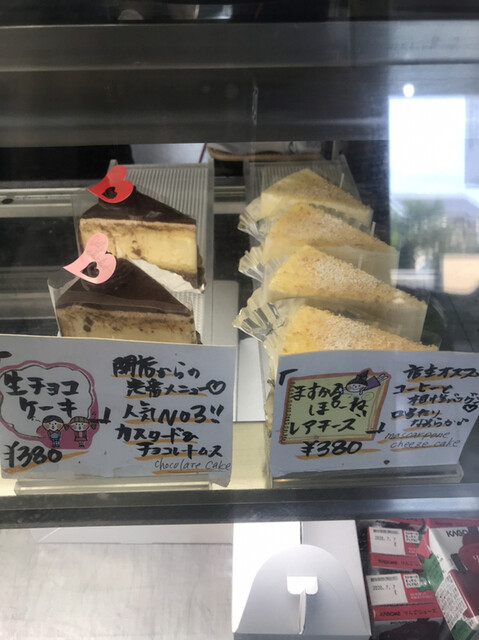 生チョコ
ケーキ
¥380
開店からの
定番メニュー♡
人気No3!!
カスタード&
チョコレートムース
chocolate cake
ますかる
ぽーね
レアチーズ
¥380
店主オススメ
コーヒーと
相性
口当たり
なめらか♪
mascarpone
cheese cake
KAGO